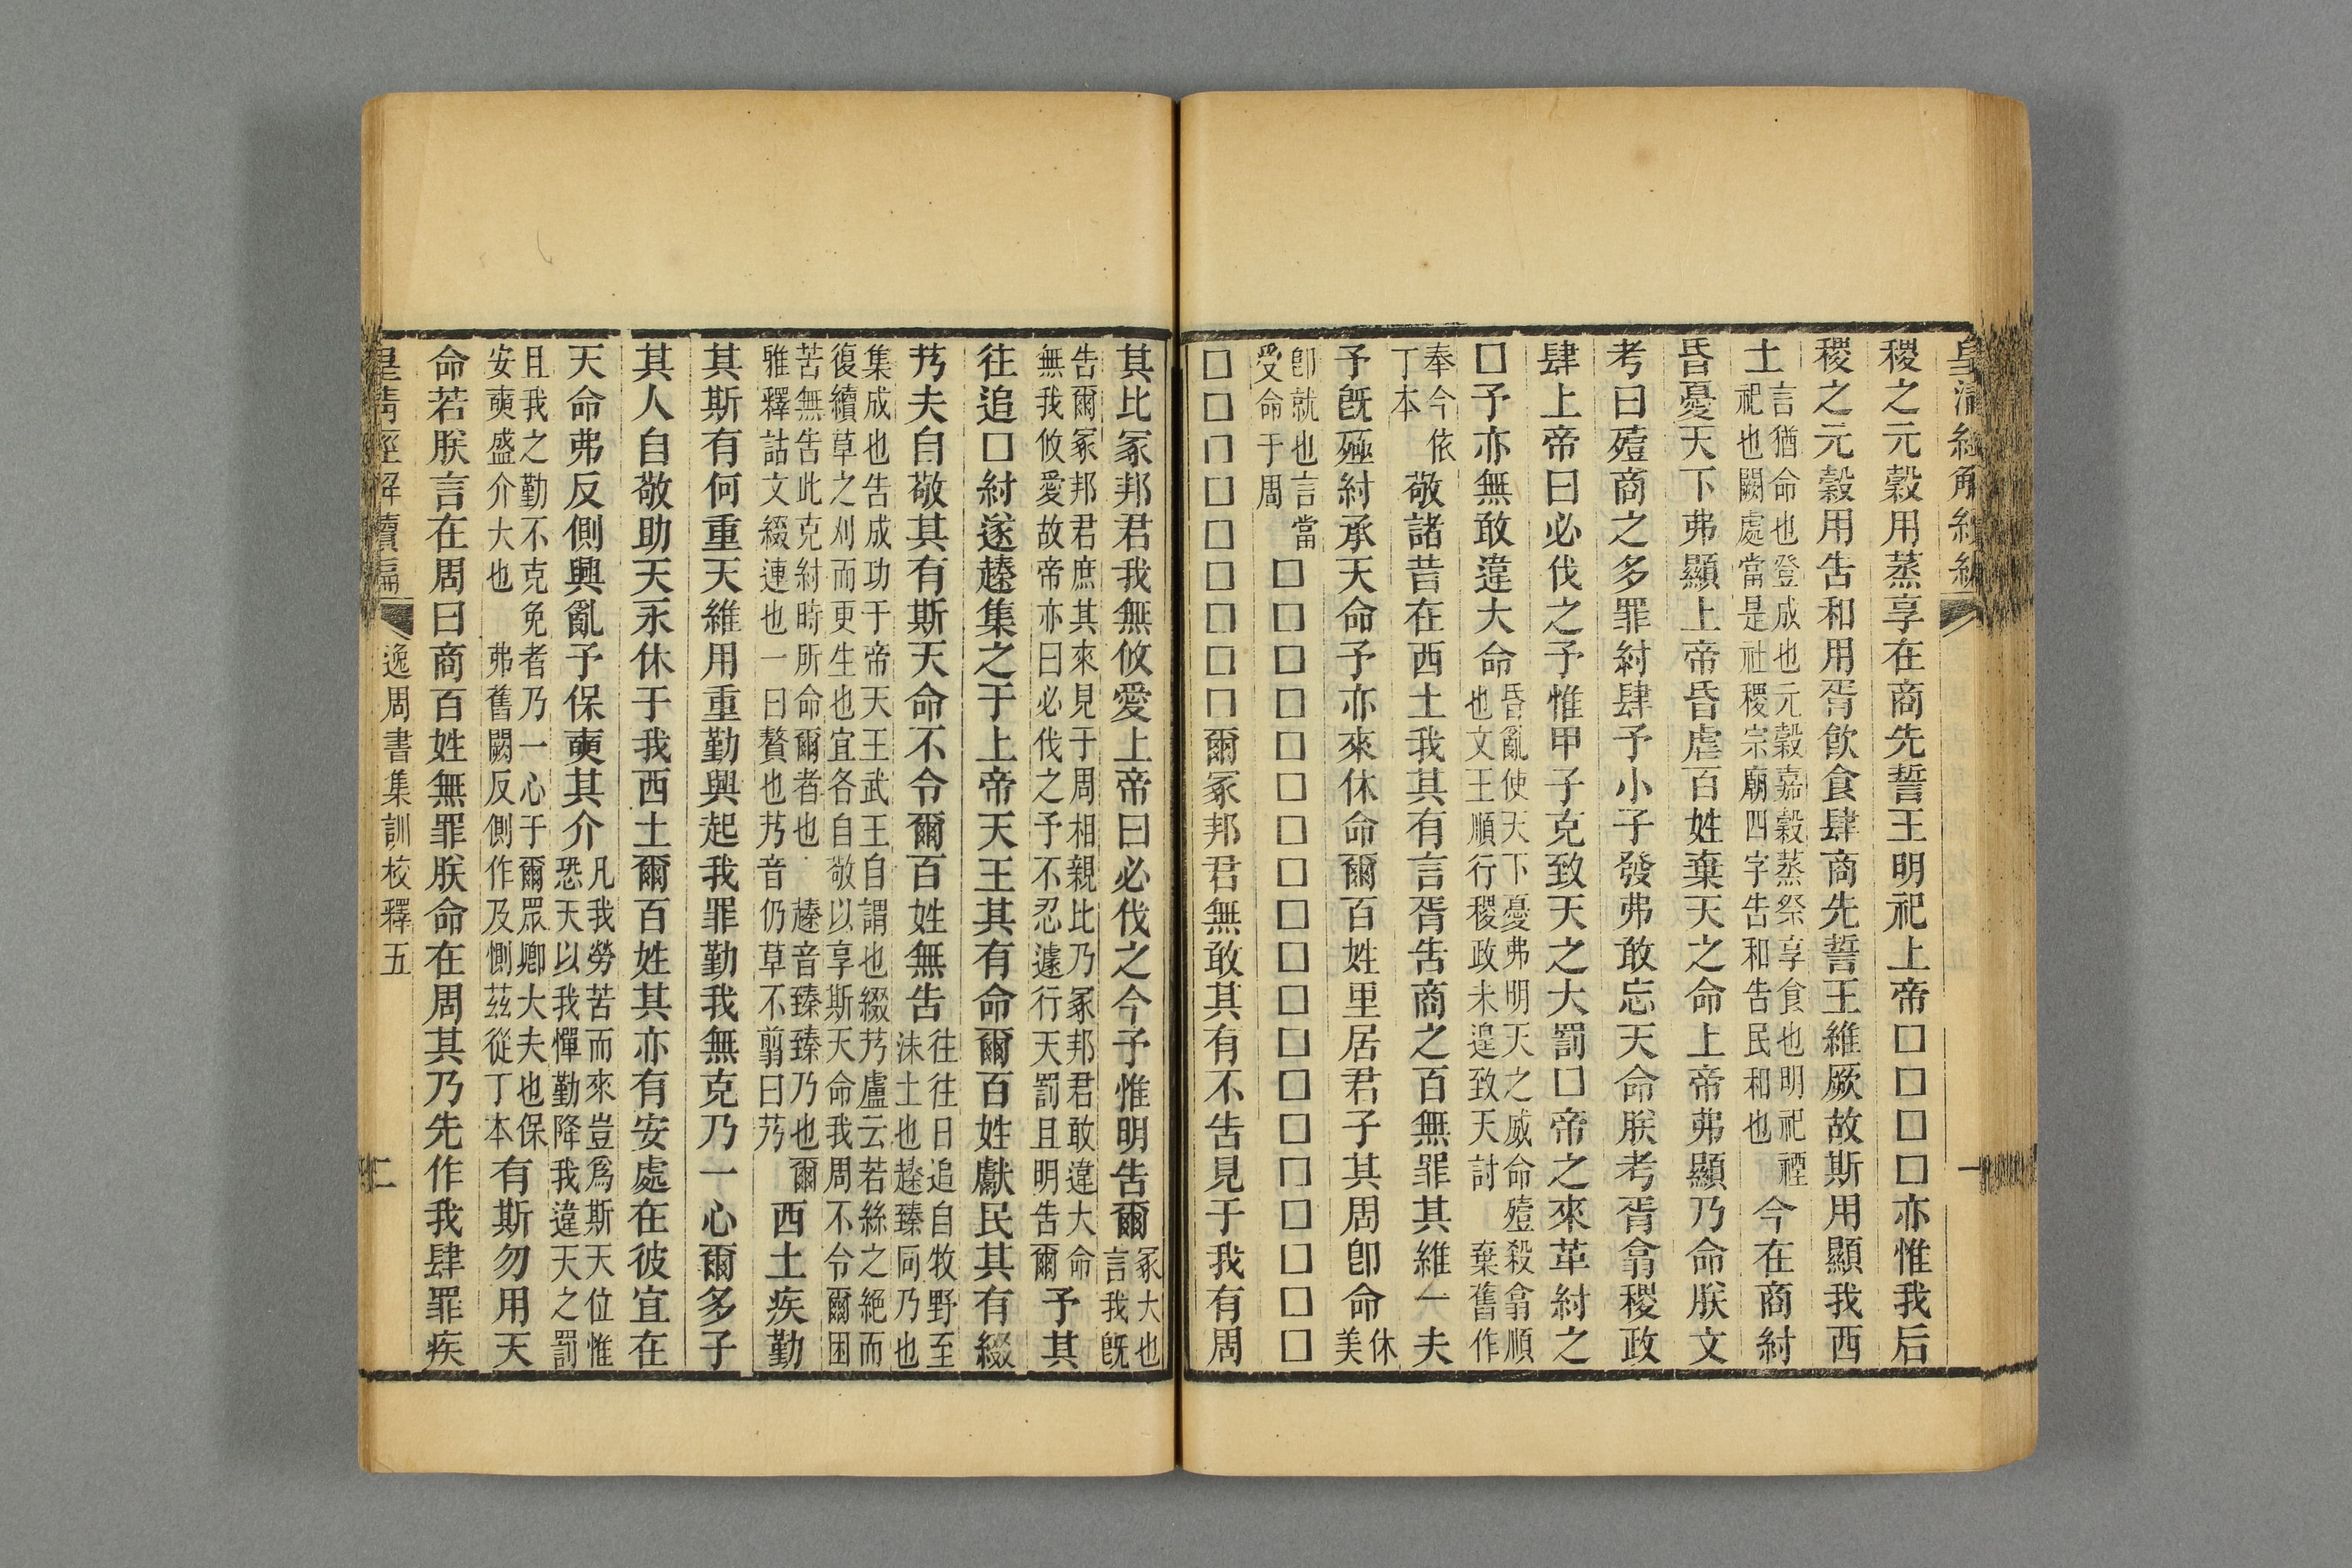 皇清經解續編
一
稷之元穀用蒸享在商先誓王明祀上帝□□□□亦惟我后
稷之元穀用告和用胥飲食肆商先誓王維厥故斯用顯我西
土言猶命也登成也元穀嘉穀蒸祭享食也明祀禋祀也闕處當是社稷宗廟四字告和告民和也今在商紂
昏憂天下弗顯上帝昏虐百姓棄天之命上帝弗顯乃命朕文
考曰殪商之多罪紂肆予小子發弗敢忘天命朕考胥翕稷政
肆上帝曰必伐之予惟甲子克致天之大罰□帝之來革紂之
□予亦無敢違大命昏亂使天下憂弗明天之威命殪殺翕順也文王順行稷政未遑致天討棄舊作
奉今依丁本敬諸昔在西土我其有言胥告商之百無罪其維一夫
予旣殛紂承天命予亦來休命爾百姓里居君子其周卽命休美
卽就也言當受命于周□□□□□□□□□□□□□□□□□□□
□□□□□□□□□爾冢邦君無敢其有不告見于我有周
其比冢邦君我無攸愛上帝曰必伐之今予惟明告爾冢大也言我旣
告爾冢邦君庶其來見于周相親比乃冢邦君敢違大命無我攸愛故帝亦曰必伐之予不忍遽行天罰且明告爾予其
往追□紂遂趮集之于上帝天王其有命爾百姓獻民其有綴
艿夫自敬其有斯天命不令爾百姓無告往往日追自牧野至沬土也趮臻同乃也
集成也告成功于帝天王武王自謂也綴艿盧云若絲之絕而復續草之刈而更生也宜各自敬以享斯天命我周不令爾困
苦無告此克紂時所命爾者也 趮音臻臻乃也爾雅釋詁文綴連也一曰贅也艿音仍草不翦曰艿西土疾勤
其斯有何重天維用重勤興起我罪勤我無克乃一心爾多子
其人自敬助天永休于我西土爾百姓其亦有安處在彼宜在
天命弗反側興亂予保奭其介凡我勞苦而來豈爲斯天位惟恐天以我憚勤降我違天之罰
且我之勤不克免者乃一心于爾眾卿大夫也保安奭盛介大也 弗舊闕反側作及惻茲從丁本有斯勿用天
命若朕言在周曰商百姓無罪朕命在周其乃先作我肆罪疾
皇清經解續編
逸周書集訓校釋五
二